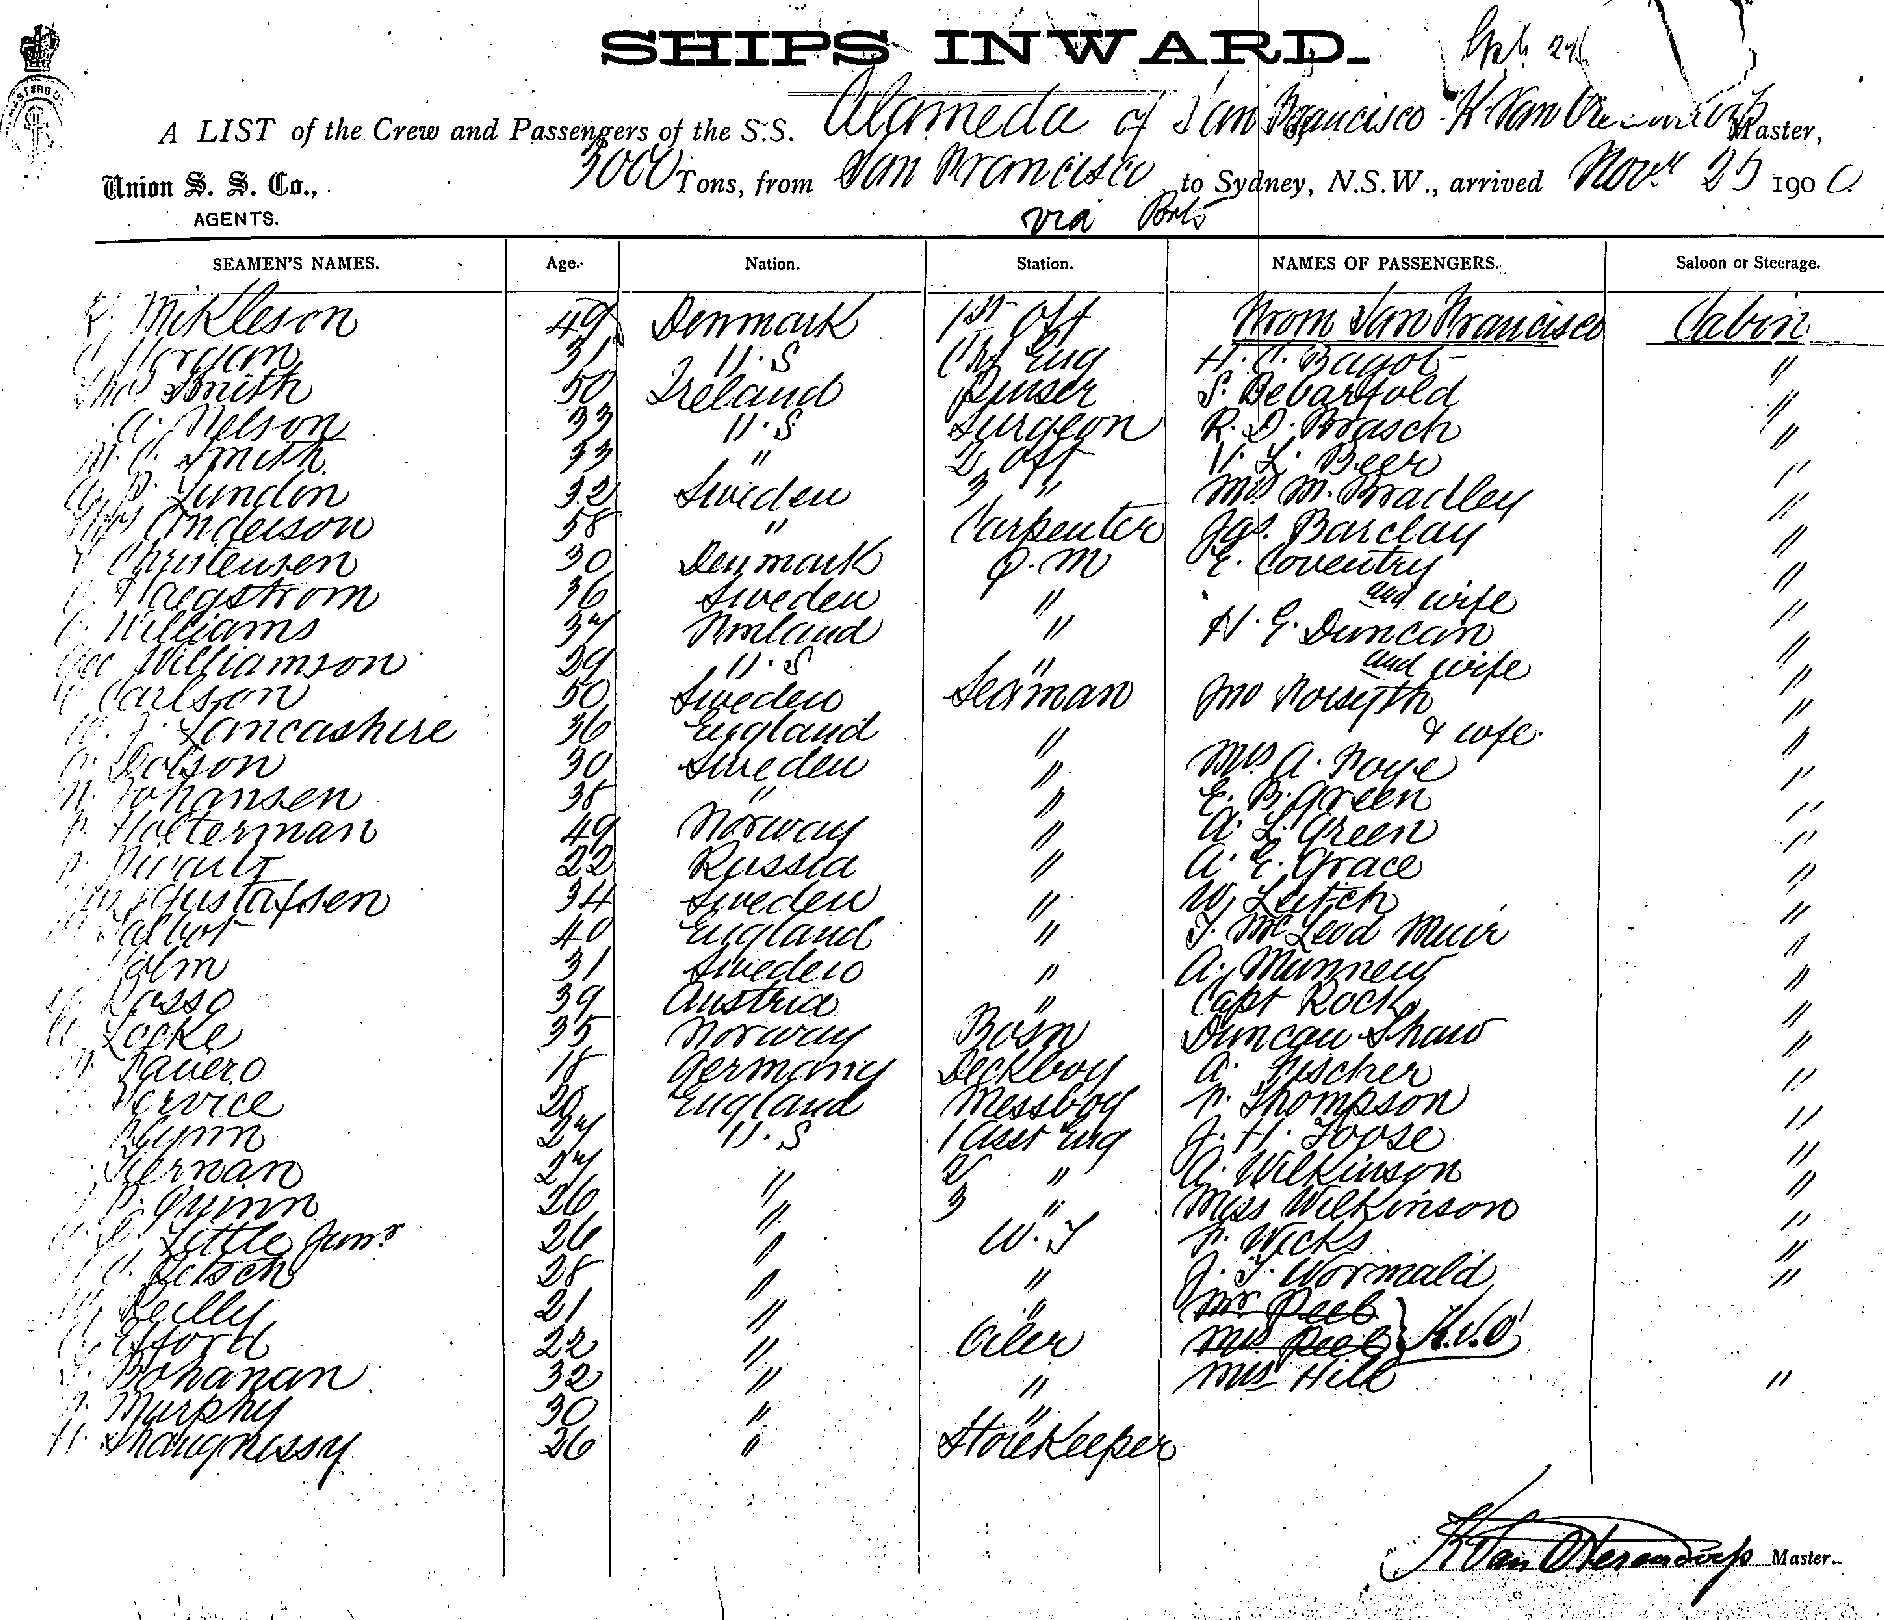 SHIPS INWARD.
A LIST of the Crew and Passengers of the S.S. Alameda of San Francisco Master,
Union S. S. Co., 3000 Tons, from San Francisco to Sydney, N.S.W., arrived Novr 25 1900
AGENTS. via Ports
SEAMEN'S NAMES. Age. Nation. Station. NAMES OF PASSENGERS. Saloon or Steerage.
Mikleson 49 Denmark 1st Off From San Francisco Cabin
Morgan 31 U.S Chf Eng H. C. Bagot "
Thos Smith 50 Ireland Purser S. Debarfold "
A. Nelson 33 U.S Surgeon R. D. Brasch "
M. C. Smith 33 " 2 Off V. L. Beer "
Lundin 32 Sweden 3 " Mrs M. Bradley "
Anderson 58 " Carpenter Jas. Barclay "
Christensen 30 Denmark Q. M E. Coventry "
Haegstrom 36 Sweden " and wife "
Williams 37 Finland " H. E. Duncan "
Geo Williamson 29 U.S " and wife "
Carlson 50 Sweden Seaman Jno Forsyth "
Lancashire 36 England " & wife "
Dolson 30 Sweden " Mrs A. Foye "
Johansen 38 " " E. B. Green "
Holterman 49 Norway " A. L. Green "
22 Russia " A. E. Grace "
Gustafsen 34 Sweden " W. Leitch "
Talbot 40 England " T. McLeod Muir "
Malm 31 Sweden " A. Munnew "
Rasso 39 Austria " Capt Rock "
Locke 35 Norway Bosn Duncan Shaw "
Pauero 18 Germany Deckboy A. Fischer "
Service 20 England Messboy F. Thompson "
Flynn 27 U.S 1 Asst Eng J. H. Toose "
Kernan 27 " 2 " A. Wilkinson "
P. Quinn 26 " 3 " Miss Wilkinson "
Little Junr 26 " W. T F. Wicks "
Ketsch 28 " " J. T. Wormald "
Reilly 21 " " Mr Peel
Efford 22 " Oiler Mrs Peel
Bohanan 32 " " Mrs Hill "
Murphy 30 " "
Shaugnessy 26 " Storekeeper
Master.